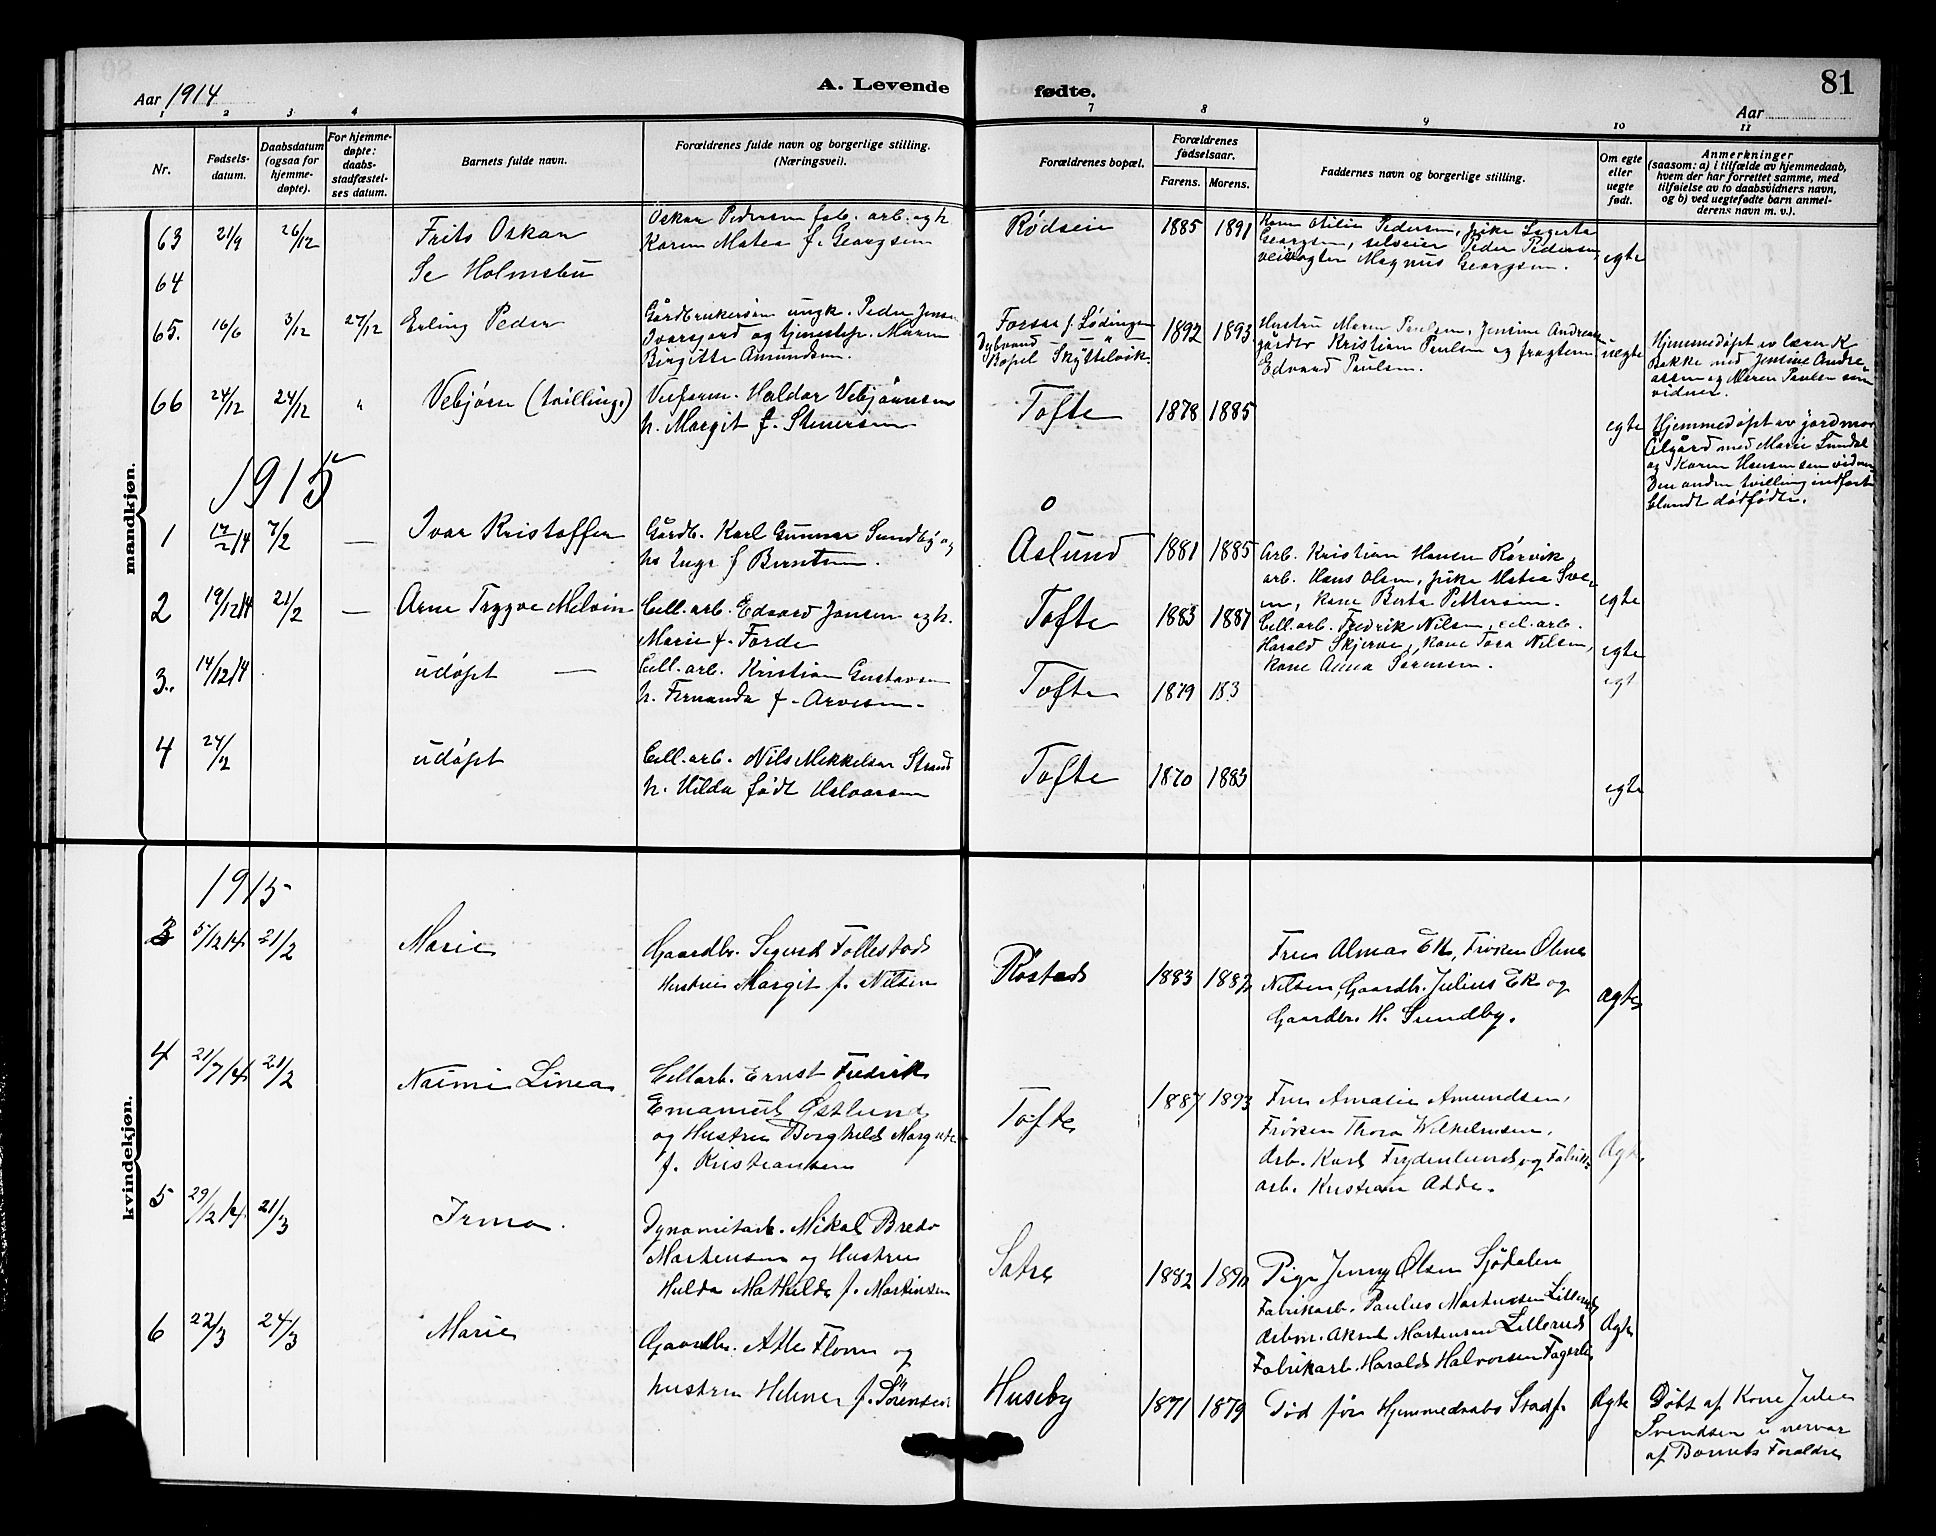 81
Aar 1914
A. Levende
fødte.
Aar
1 2 3 4
7 8 9 10 11
Nr.
Fødsels-
datum.
Daabsdatum
(ogsaa for
hjemme-
døpte).
For hjemme-
døpte:
daabs-
stadfæstel-
ses datum.
Barnets fulde navn.
Forældrenes fulde navn og borgerlige stilling.
(Næringsvei).
Forældrenes bopæl.
Forældrenes
fødselsaar.
Farens. Morens.
Faddernes navn og borgerlige stilling.
Om egte
eller
uegte
født.
Anmerkninger
(saasom: a) i tilfælde av hjemmedaab,
hvem der har forrettet samme, med
tilføielse av to daabsvidners navn,
og b) ved uegtefødte barn anmel-
derens navn m. v.).
mandkjøn.
63 21/9 26/12 Frits Oskar
Oskar Pedersen fab. arb. og h
Karen Matea f. Georgsen
Rødsein 1885 1891
Kone Otilie Pedersen, pike Sagerta
Georgsen, selveier Peder Pedersen,
veivogter Magnus Georgsen.
egte
64 Se Holmsbu
65. 16/6 3/12 27/12 Erling Peder
Gårdbrukersøn ungk. Peder Jens
Ivarsjord og tjenestep. Maren
Birgitte Amundsen.
Forsaa f. Lødingen
Dybvand "
Bopel Skjttelvik
1892 1893
Hustru Maren Paulsen, Jensine Andreas
gårdbr Kristian Paulsen og fragtem
Edvard Paulsen.
uegte
Hjemmedøpt av lærer K
Bakke med Jensine Andre-
assen og Maren Paulsen som
vidner.
66 24/12 24/12 " Vebjørn (tvilling.)
Verform. Haldor Vebjørnsen
h. Margit f. Stenersen
Tofte 1878 1885
egte
Hjemmedøpt av jordmor
Ålgård med Marie Sundal
og Karen Hansen som vidner
Den anden tvilling indført
blandt dødfødte.
1915
1 17/2 14 7/2 — Ivar Kristoffer
Gårdb. Karl Gunnar Sundby og
hs Inga f Berntsen.
Åslund 1881 1885
Arb. Kristian Hansen Rørvik,
arb. Hans Olsen, pike Matea Sve-
en, kone Berta Pettersen.
egte
2 19/12 14 21/2 — Arne Trygve Melvin
Cell. arb. Edvard Jansen og h.
Marie f. Forde
Tofte 1883 1887
Cell. arb. Fredrik Nilsen, cel. arb.
Harald Skjerve, kone Tora Nilsen,
kone Anna Sørensen.
egte
3. 14/12 14 udøpt —
Cell. arb. Kristian Gustavsen
h. Fernanda f. Arvesen.
Tofte 1879 183
egt
4 24/2 udøpt
Cell. arb. Nils Mikkelsen Strand
h. Hilda født Halvorsen
Tofte 1870 1883
egte
kvindekjøn.
1915
3 5/12 14 21/2 Marie
Gaardbr. Sigurd Follestad
Hustru Margit f. Nilsen
Røstad 1883 1882
Fru Alma Ek, Frøken Olma
Nilsen, Gaardbr. Julius Ek og
Gaardbr. H. Sundby.
ægte
4 21/7 14 21/2 Naimi Linea
Cellarb. Ernst Fredrik
Emanuel Østlund
og Hustru Borghild Margrete
f. Kristiansen
Tofte 1887 1893
Fru Amalie Amundsen,
Frøken Thora Wilhelmsen,
Arb. Karl Frydenlund og Fabrik-
arb. Kristian Adde.
Ægte
5 29/12 14 21/3 Irma.
Dynamitarb. Mikal Bredo
Martensen og Hustru
Hulda Mathilde f. Martinsen
Satre 1882 1890
Pige Jenny Olsen Sjødalen
Fabrikarb. Paulus Martensen Lillerud
Arbm. Aksel Martensen Lillerud
Fabrikarb. Harald Halvorsen Fagerli
Ægte
6 22/3 24/3 Marie
Gaardbr. Atle Floen og
hustru Helene f. Sørensen
Huseby 1871 1879
Død før Hjemmedaabs Stadf.
Ægte
Døbt af Kone Julie
Svendsen i nervær
af Barnets Foraldre